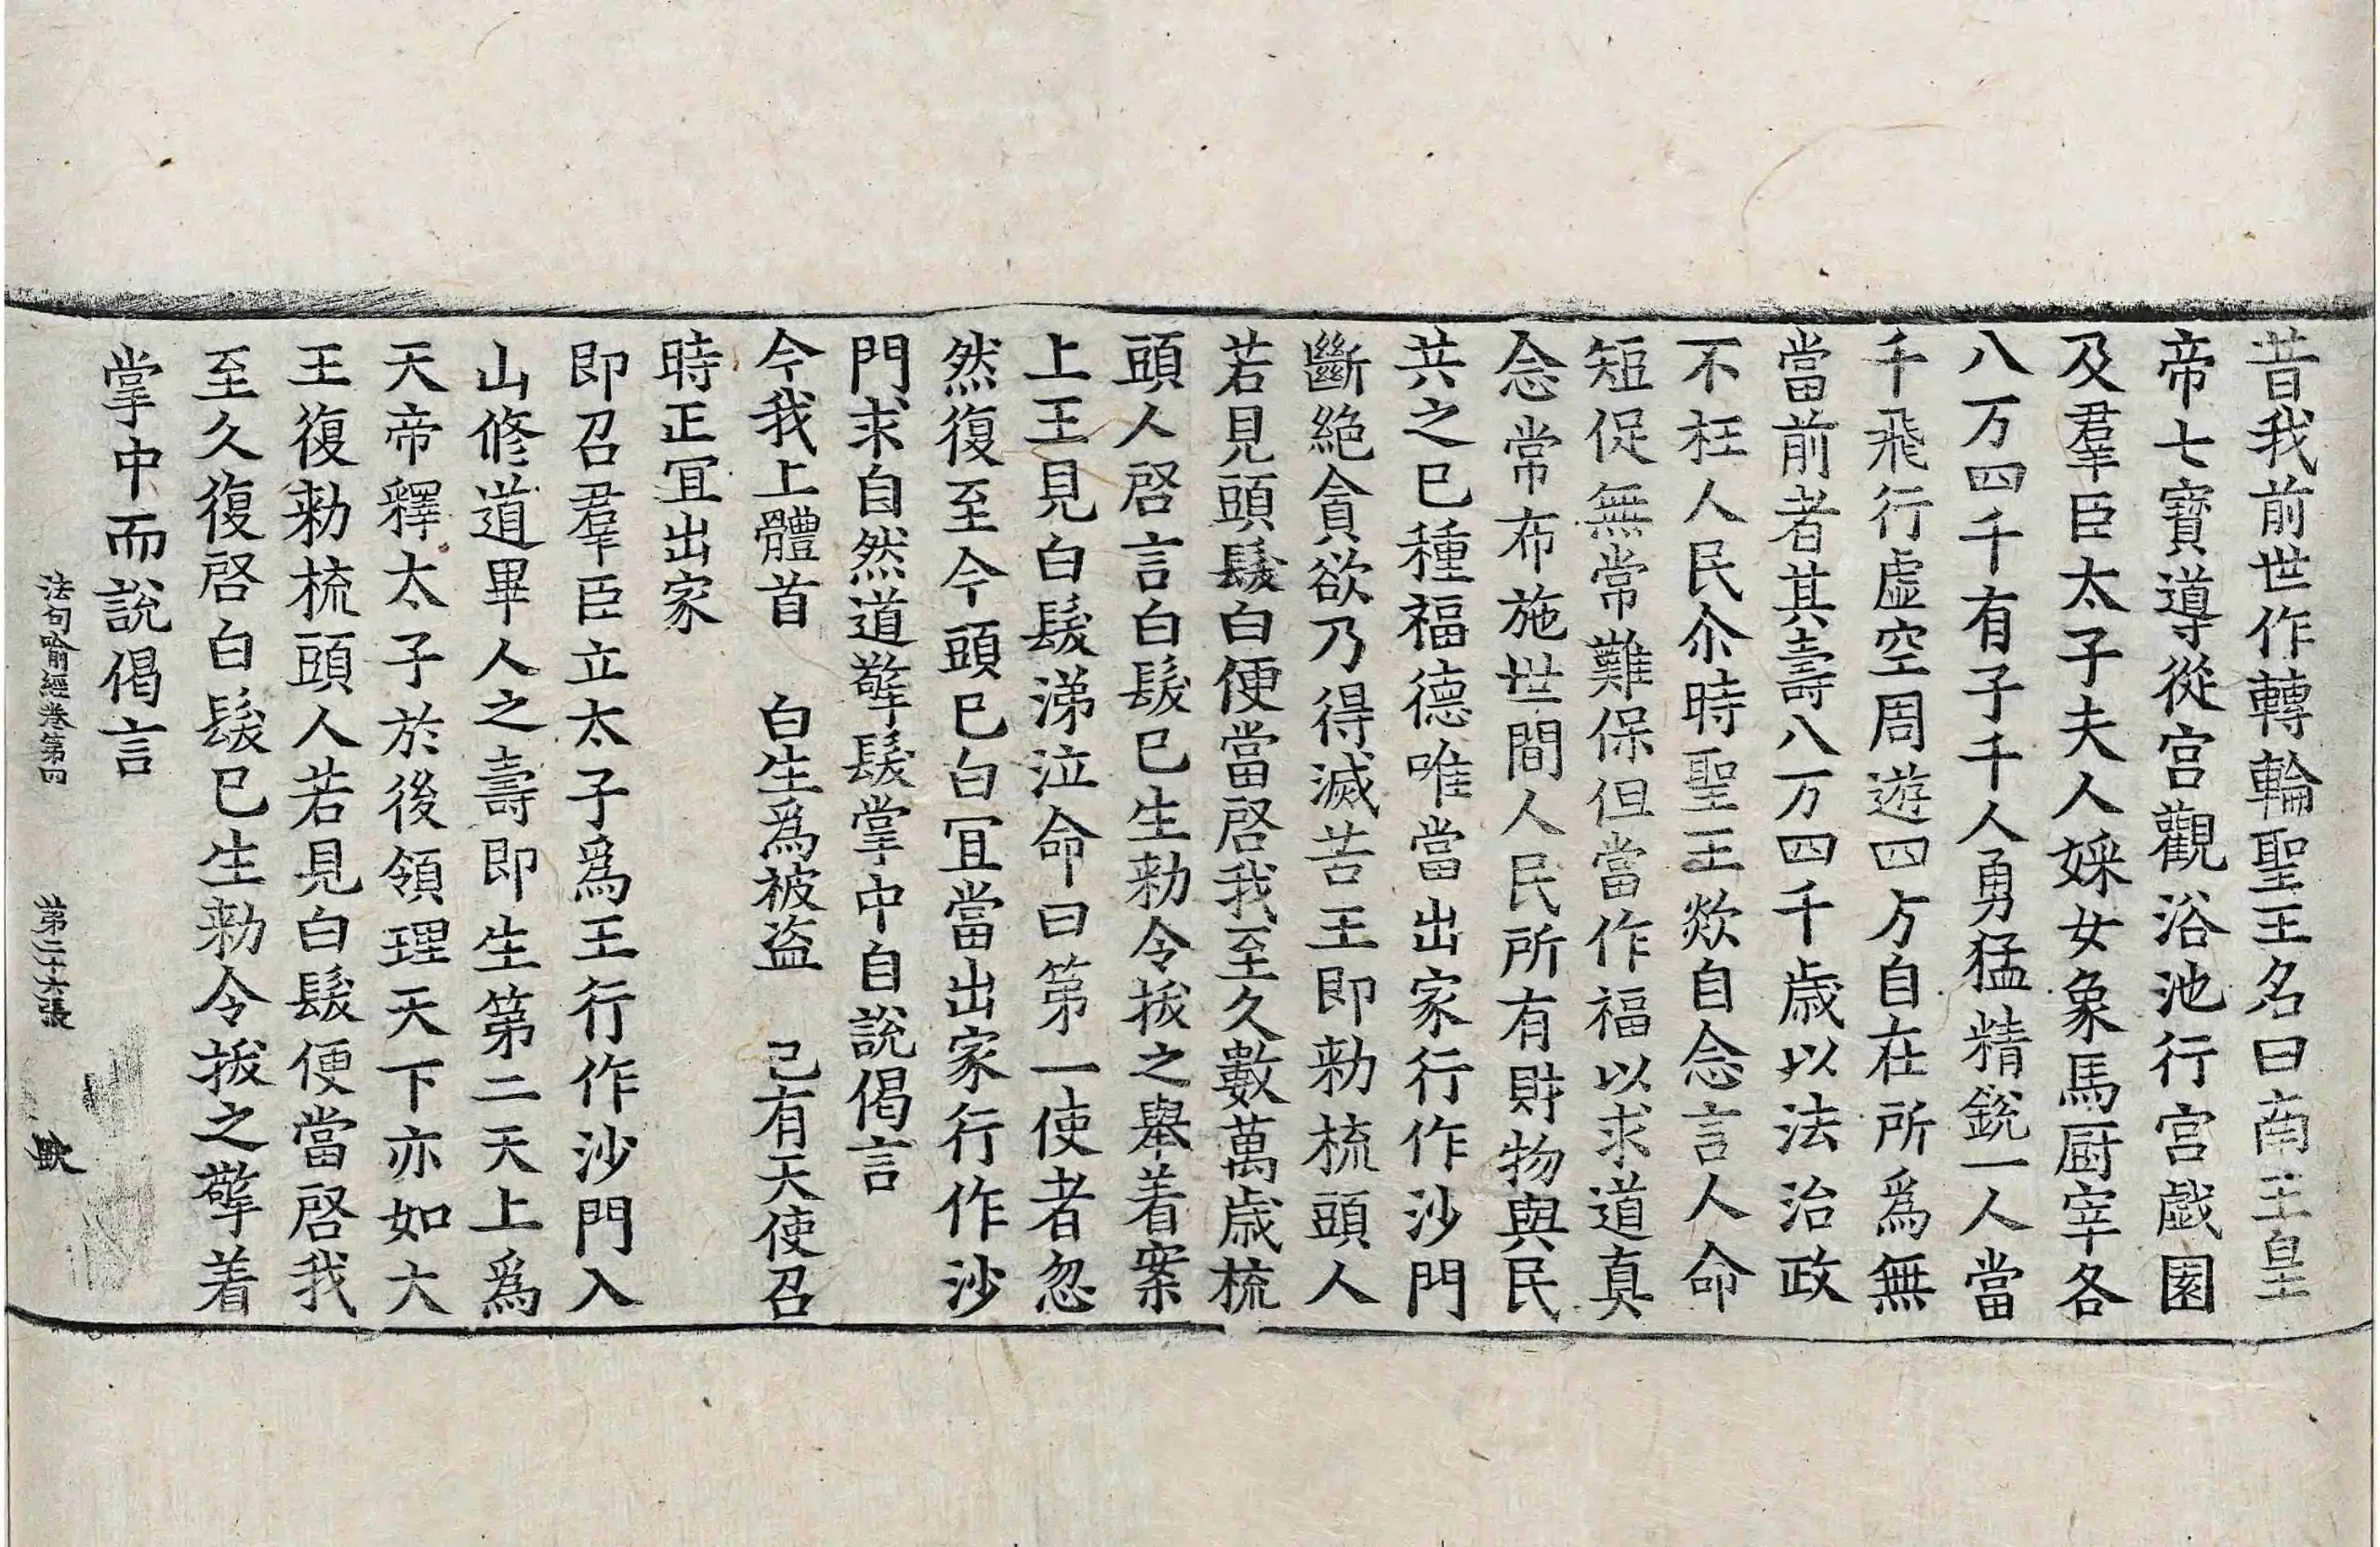 昔我前世作轉輪聖王名曰南王皇
帝七寶導從宮觀浴池行宮戲園
及羣臣太子夫人婇女象馬厨宰各
八万四千有子千人勇猛精銳一人當
千飛行虛空周遊四方自在所爲無
當前者其壽八万四千歲以法治政
不枉人民尒時聖王欻自念言人命
短促無常難保但當作福以求道真
念常布施世間人民所有財物與民
共之已種福德唯當出家行作沙門
斷絕貪欲乃得滅苦王即勑梳頭人
若見頭髮白便當啓我至久數萬歲梳
頭人啓言白髮已生勑令拔之舉着案
上王見白髮涕泣命曰第一使者忽
然復至今頭已白冝當出家行作沙
門求自然道擎髮掌中自說偈言
今我上體首　白生爲被盜　已有天使召
時正冝出家
即召羣臣立太子爲王行作沙門入
山修道畢人之壽即生第二天上爲
天帝釋太子於後領理天下亦如大
王復勑梳頭人若見白髮便當啓我
至久復啓白髮已生勑令拔之擎着
掌中而說偈言
法句喻經卷第四　第二十六張